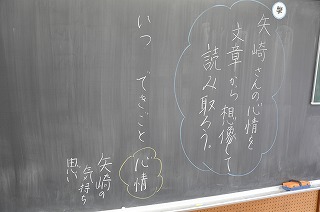 学
矢崎さんの心情を
文章から想像して
読み取ろう。
いつ できごと 心情
矢崎の
気持ち
思い